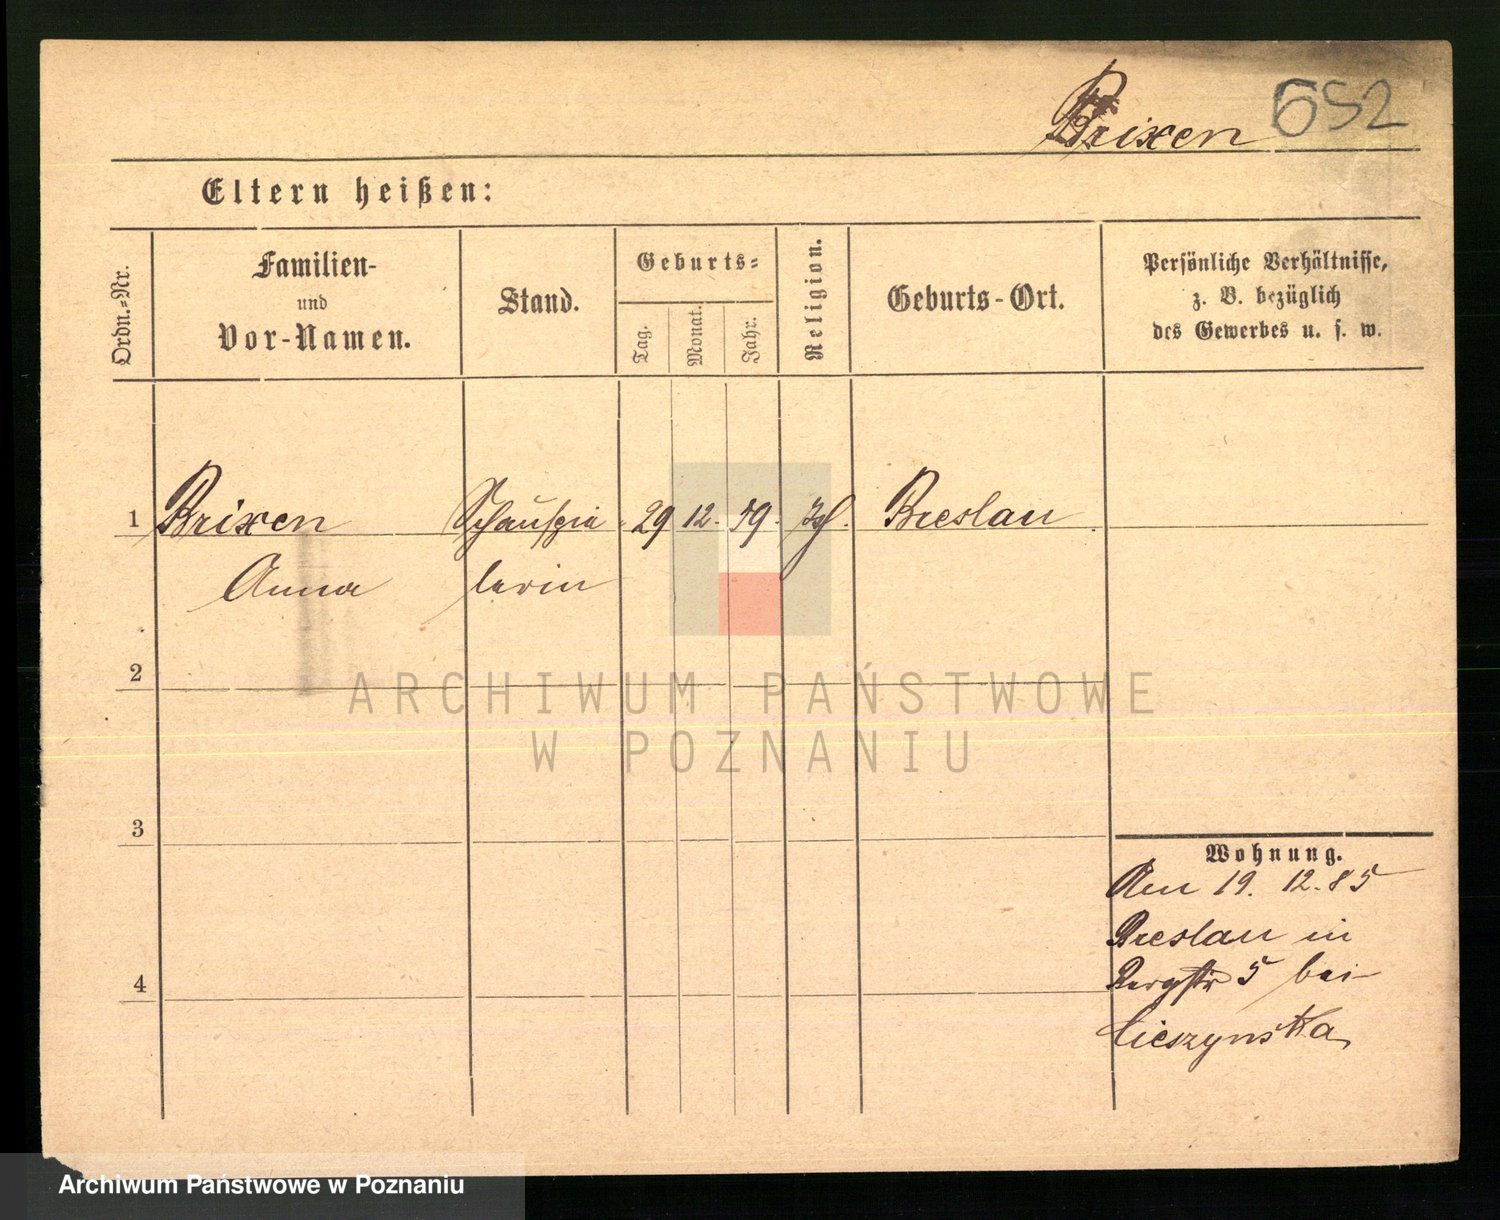 Brixen 652
Eltern heißen:
Ordn.-Nr.
Familien-
und
Vor-Namen.
Stand.
Geburts-
Tag.
Monat.
Jahr.
Religion.
Geburts-Ort.
Persönliche Verhältnisse,
z. B. bezüglich
des Gewerbes u. s. w.
1 Brixen Schauspie 29 12. 59. Breslau
Anna lerin
2
ARCHIWUM PAŃSTWOWE
W POZNANIU
3
Wohnung.
Am 19. 12. 85
Breslau in
Bergstr 5 bei
Cieszynska
4
Archiwum Państwowe w Poznaniu